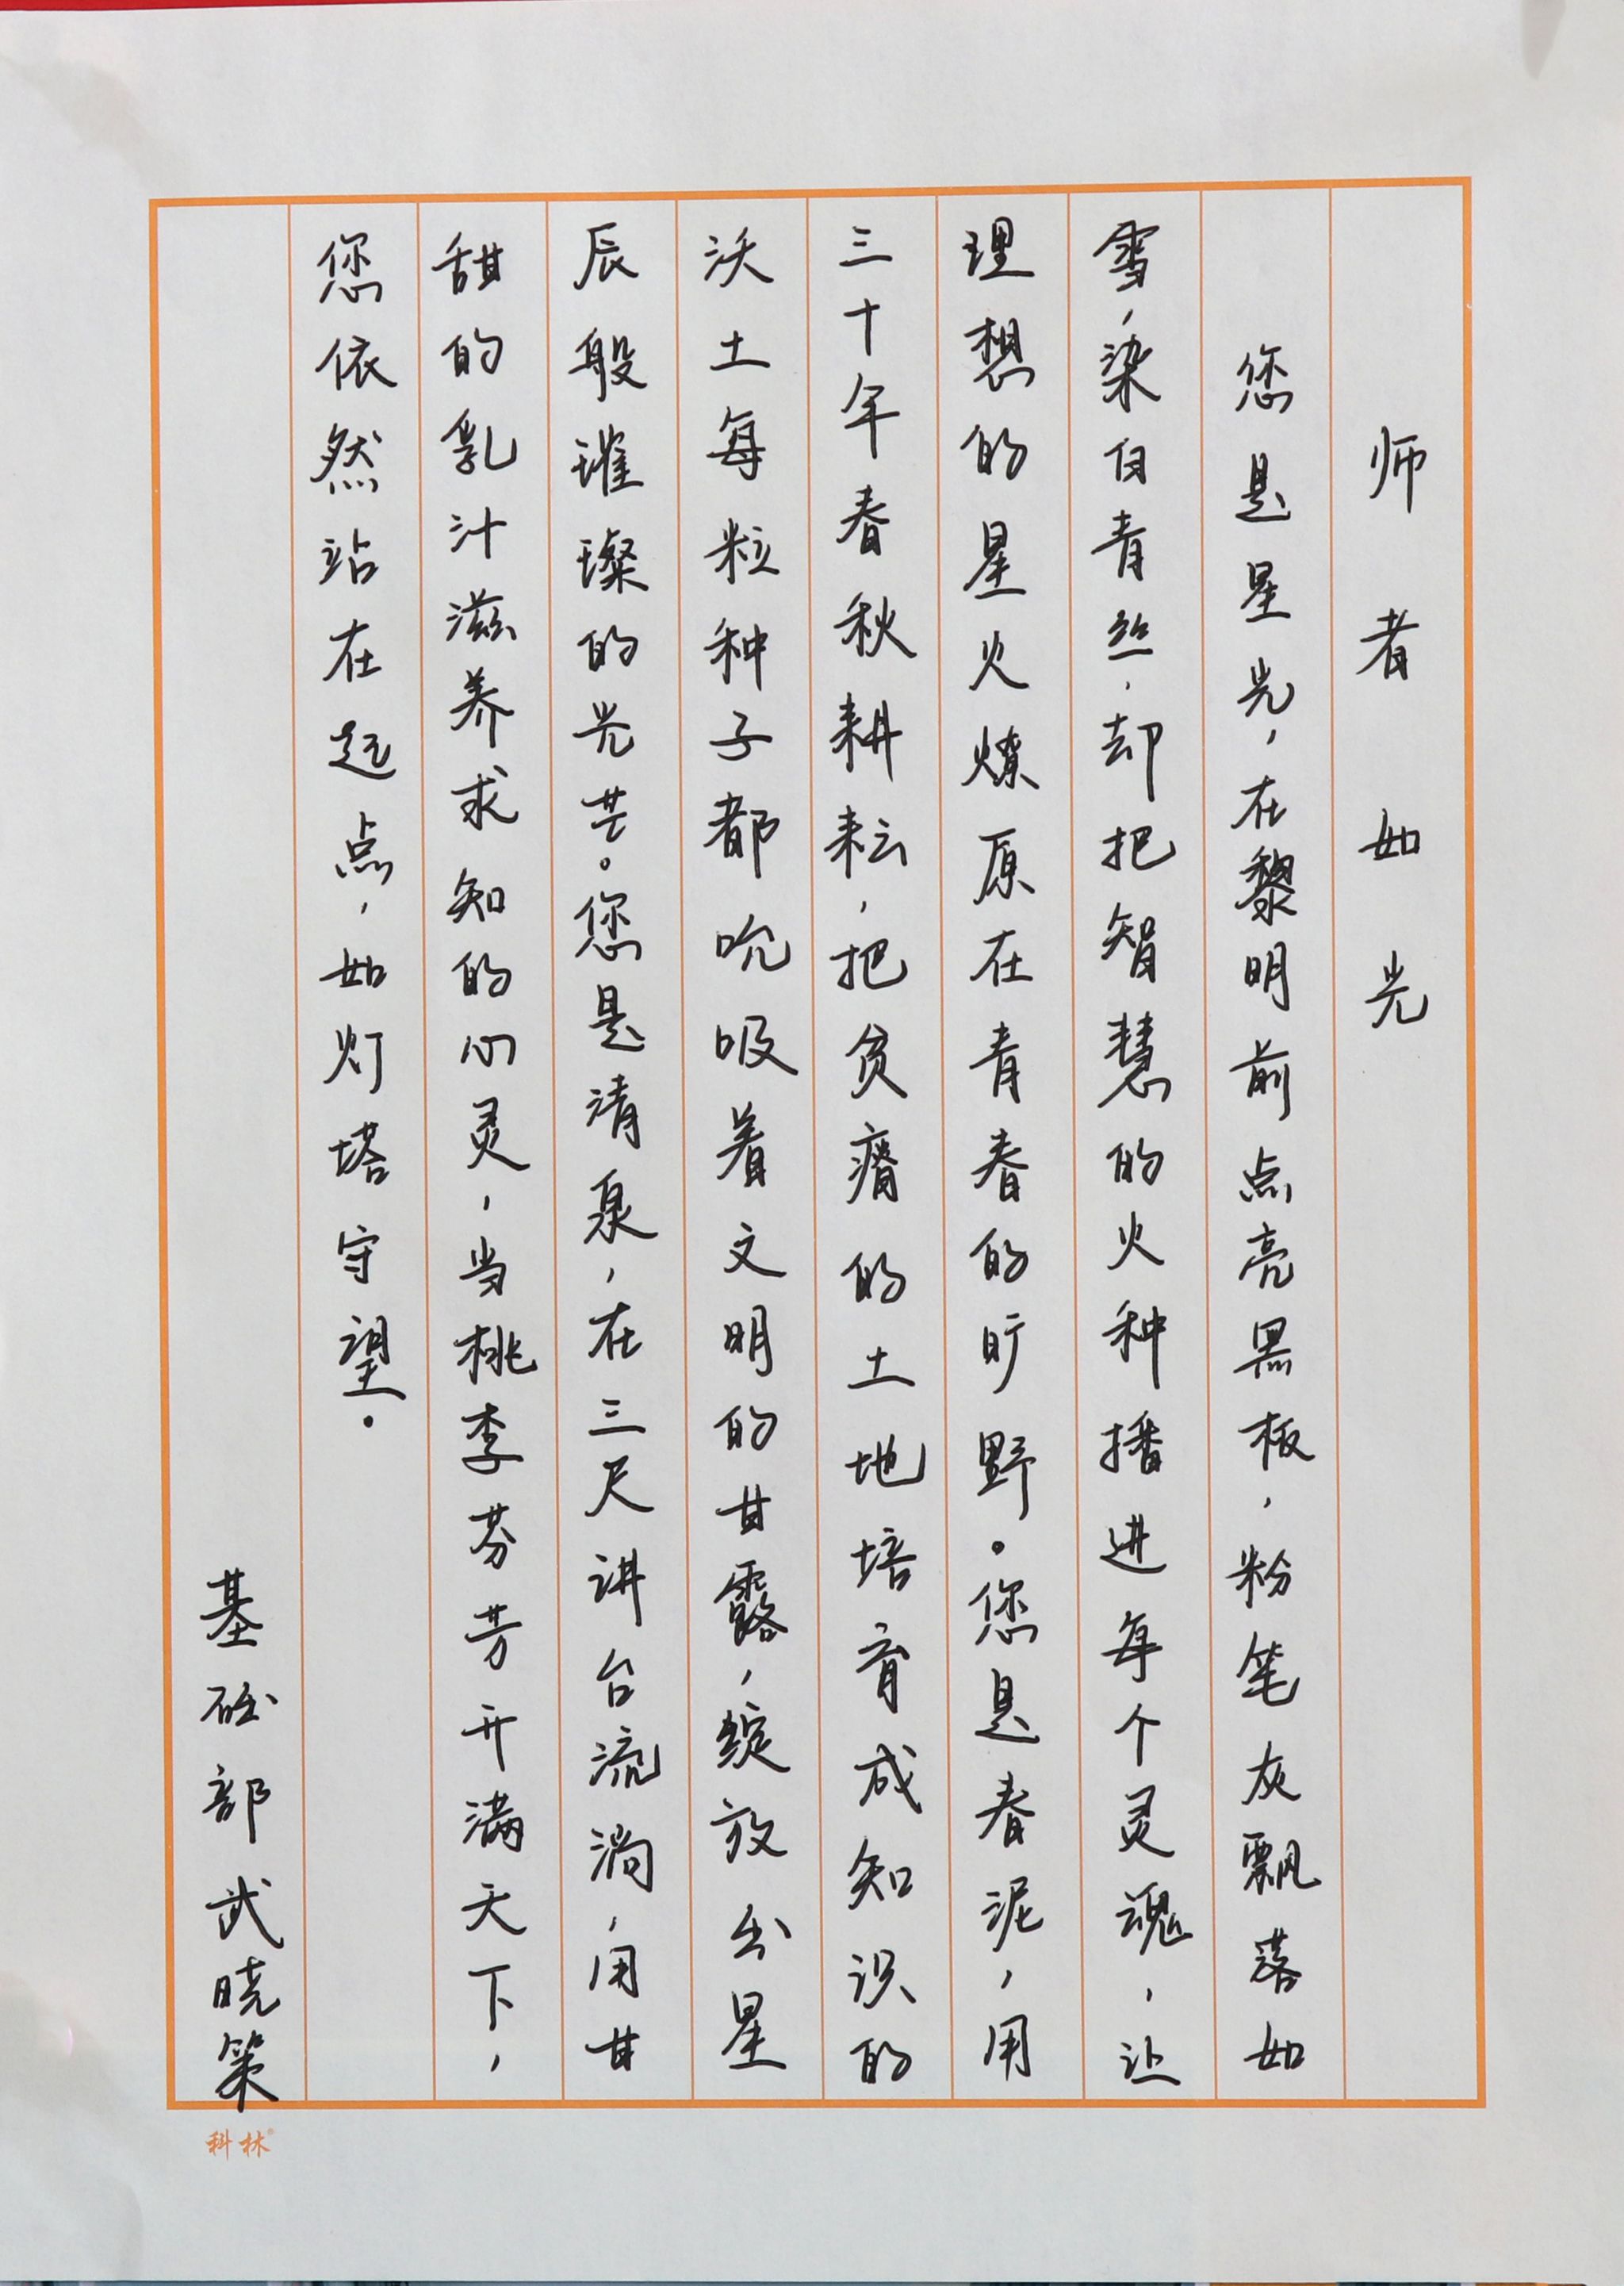 师者如光
您是星光，在黎明前点亮黑板，粉笔灰飘落如
雪，染白青丝，却把智慧的火种播进每个灵魂，让
理想的星火燎原在青春的旷野。您是春泥，用
三十年春秋耕耘，把贫瘠的土地培育成知识的
沃土每粒种子都吮吸着文明的甘露，绽放出星
辰般璀璨的光芒。您是清泉，在三尺讲台流淌，用甘
甜的乳汁滋养求知的心灵，当桃李芬芳开满天下，
您依然站在起点，如灯塔守望。
基础部武晓策
科林